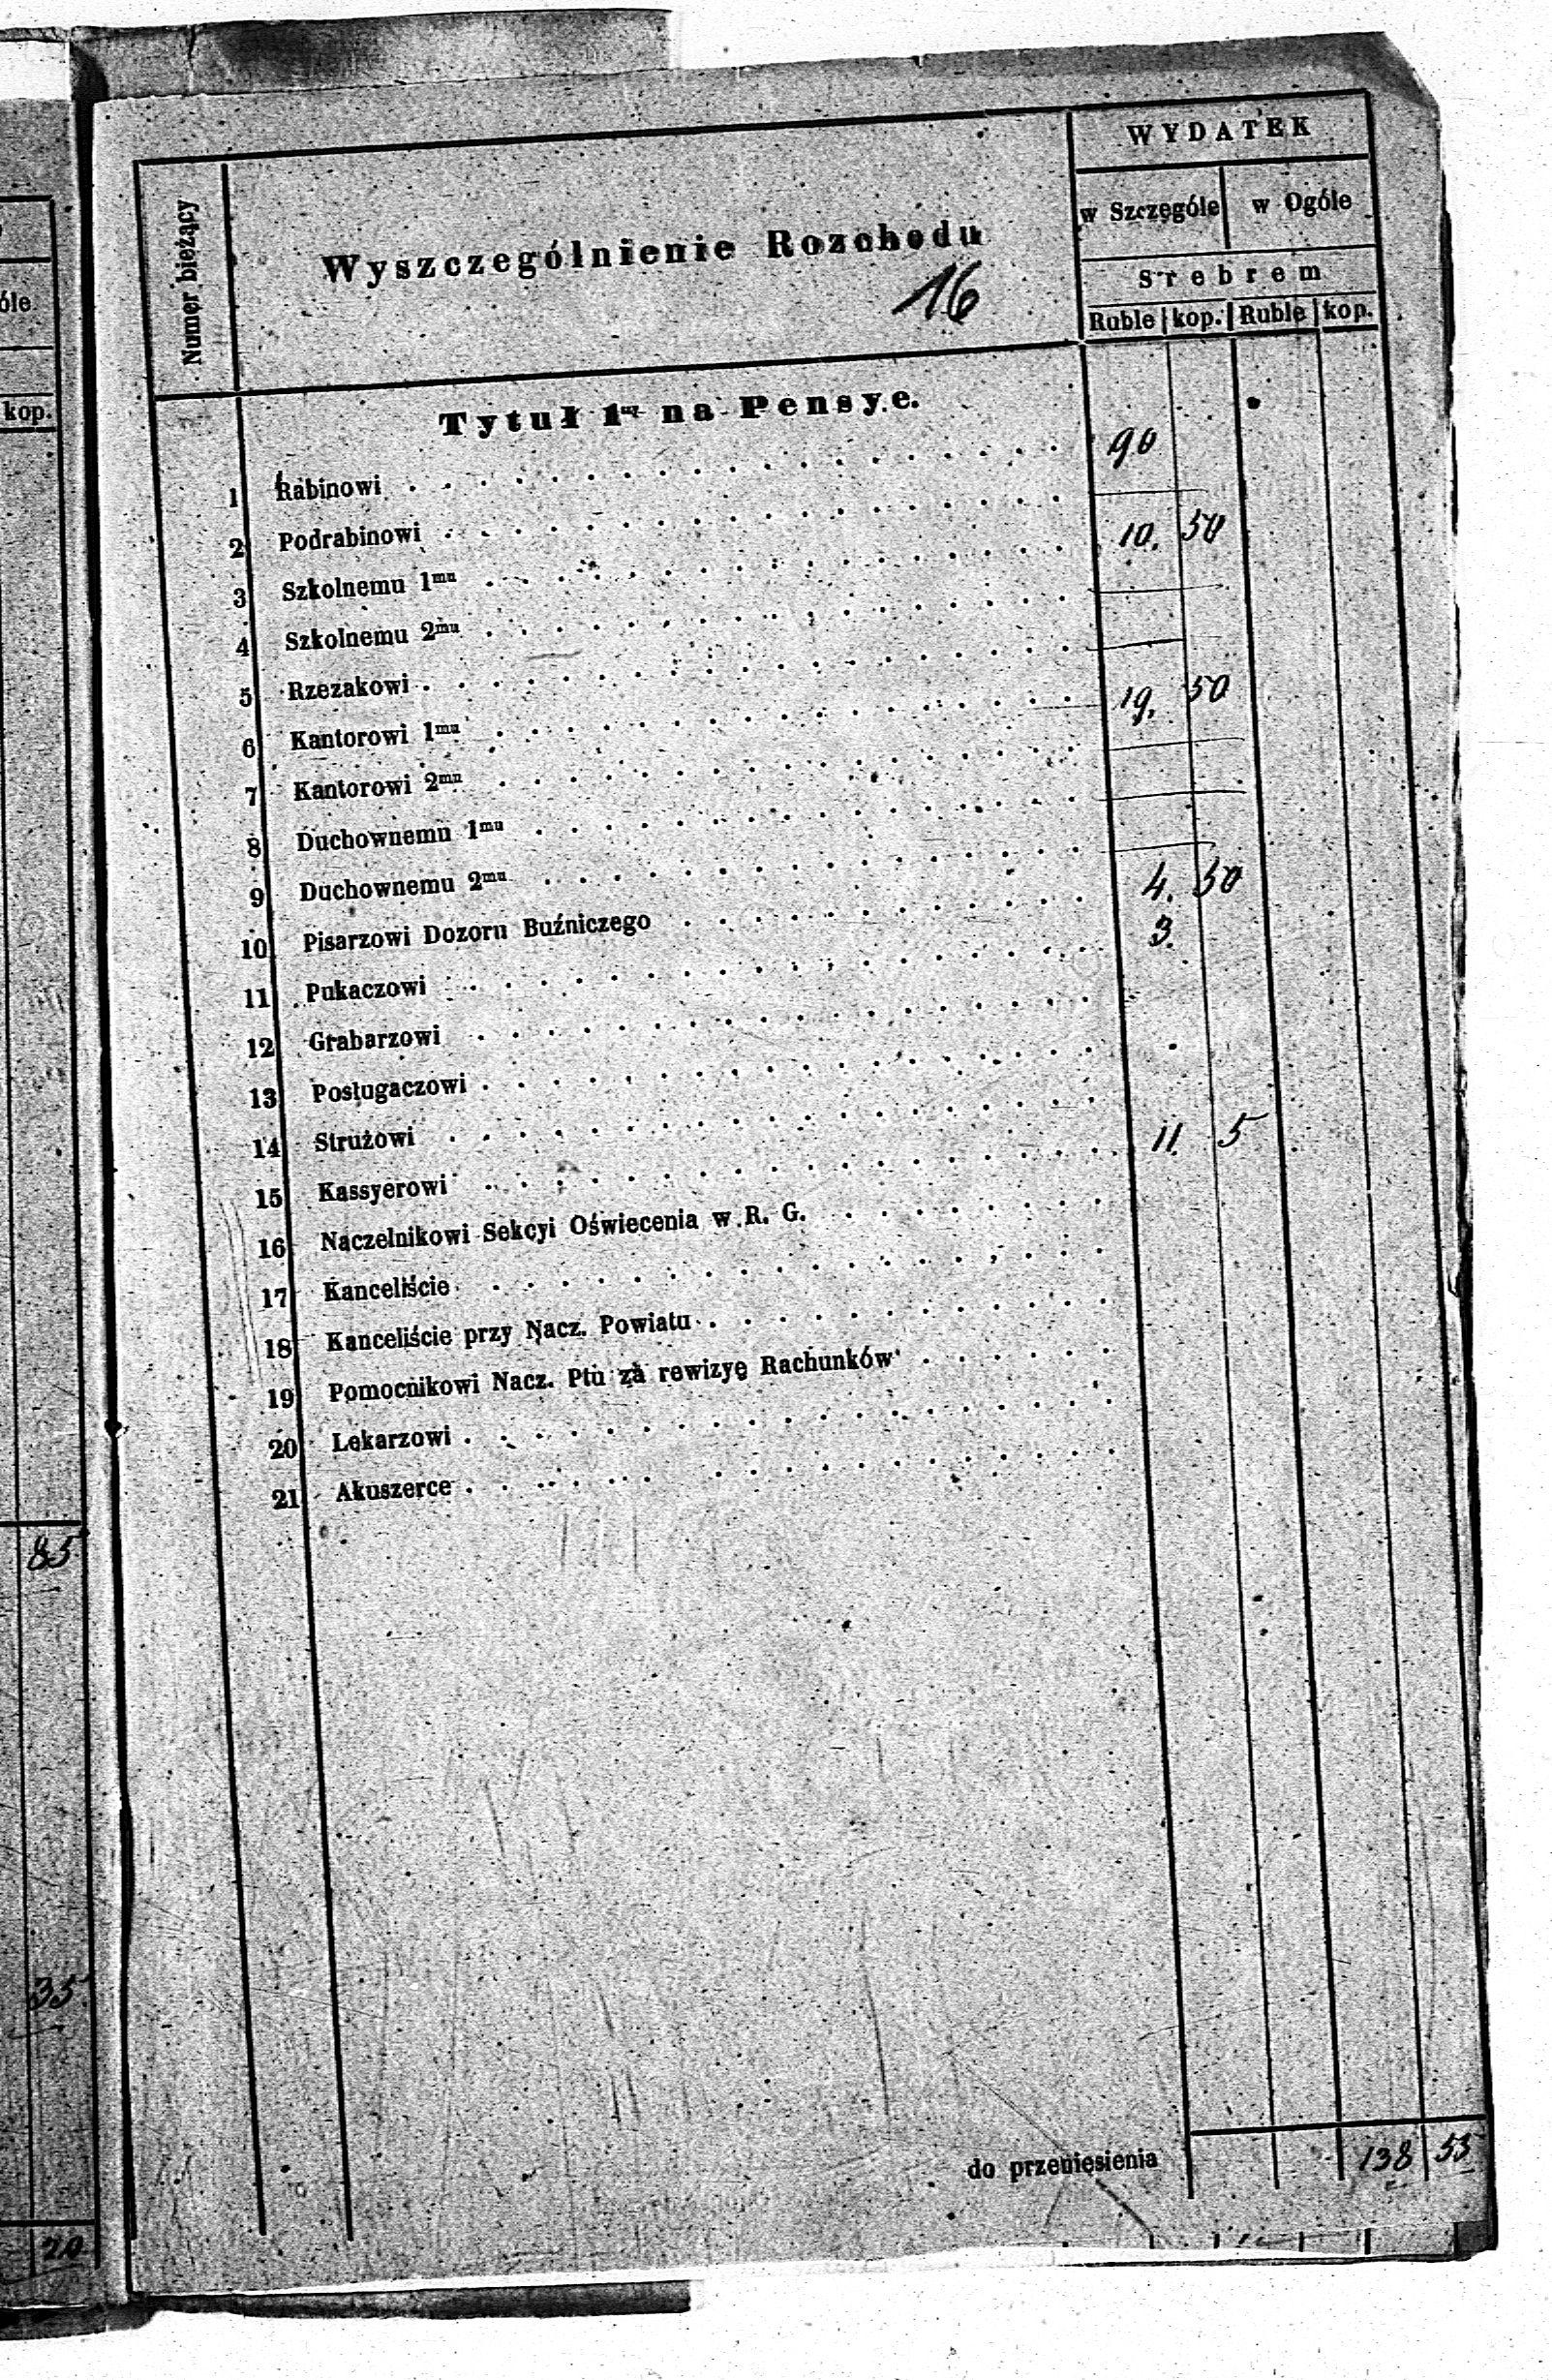 óle
kop.
85
35
20
Numer bieżący
Wyszczególnienie Rozchodu
16
WYDATEK
w Szczególe w Ogóle
Srebrem
Ruble kop. Ruble kop.
Tytuł 1szy na Pensye.
1 Rabinowi 90
2 Podrabinowi
3 Szkolnemu 1mu 10. 50
4 Szkolnemu 2mu
5 Rzezakowi
6 Kantorowi 1mu 19. 50
7 Kantorowi 2mu
8 Duchownemu 1mu
9 Duchownemu 2mu
10 Pisarzowi Dozoru Buźniczego 4. 50
11 Pukaczowi 3.
12 Grabarzowi
13 Posługaczowi
14 Strużowi
15 Kassyerowi 11. 5
16 Naczelnikowi Sekcyi Oświecenia w R. G.
17 Kanceliście
18 Kanceliście przy Nacz. Powiatu
19 Pomocnikowi Nacz. Ptu za rewizyę Rachunków
20 Lekarzowi
21 Akuszerce
do przeniesienia 138 55